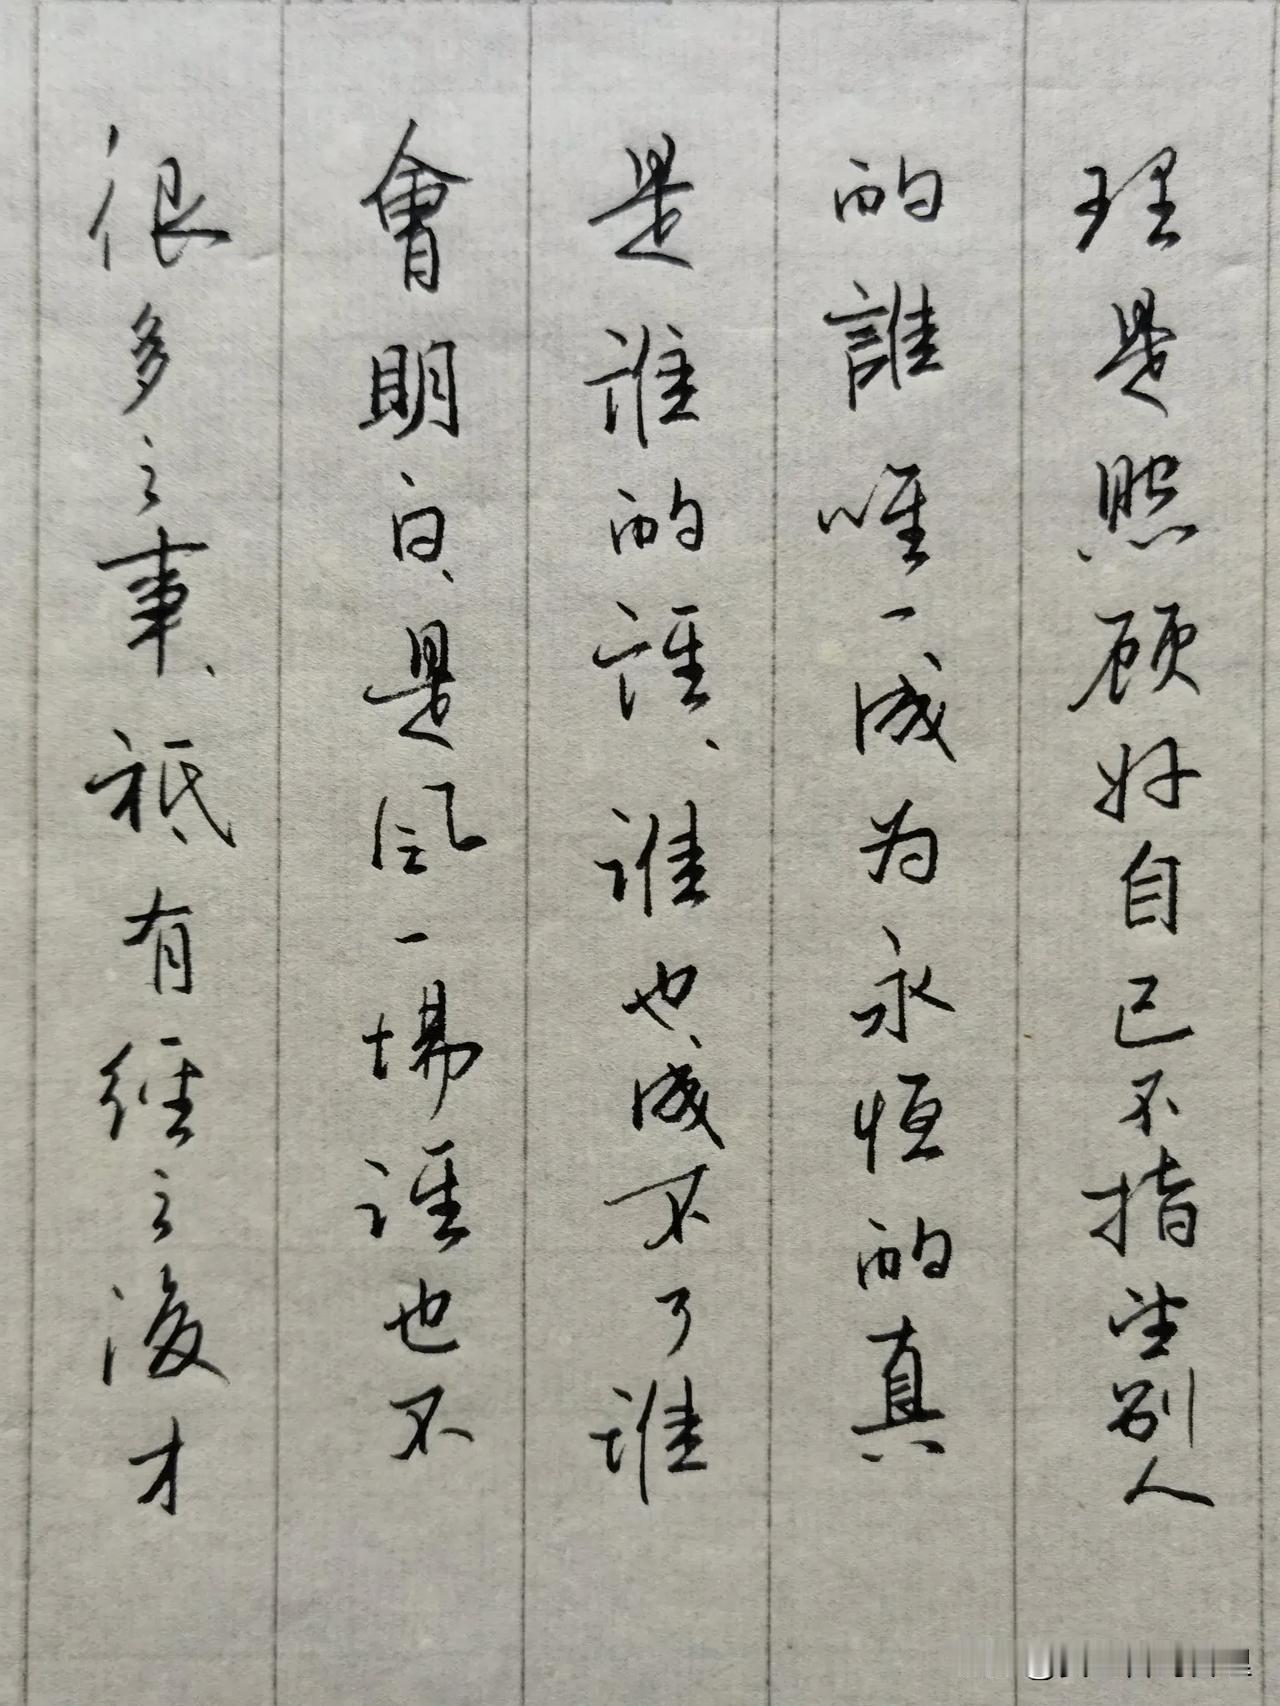 很多之事、祗有经之後才
會明白、是风一場谁也不
是谁的谁、谁也成不了谁
的誰唯一成为永恒的真
理是照顾好自己不指望别人